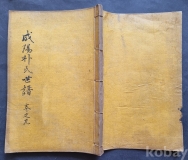 咸陽朴氏世譜
木之三
kobay